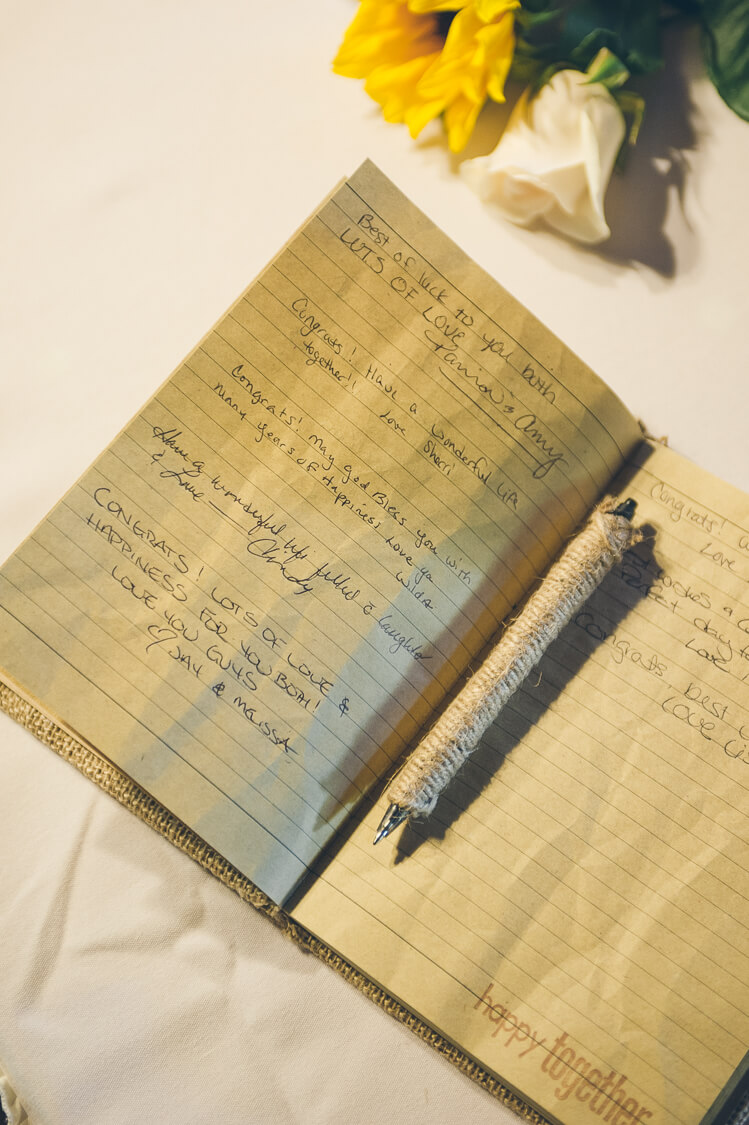 Best of luck to you both
LOTS OF LOVE
& Amy
Congrats! Have a wonderful life
together!! Love Sherri
Congrats! May god Bless you with
many years of Happiness Love ya
Wilda
Have a wonderful life filled & laughter
& Love Cindy
CONGRATS! LOTS OF LOVE &
HAPPINESS FOR YOU BOTH!
LOVE YOU GUYS
♡ JAY & MELISSA
Congrats!
Love
a
Perfect day
Love
Congrats best
LOVE
happy together